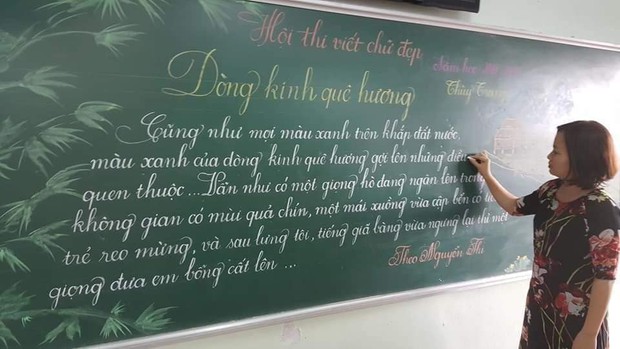 Hội thi viết chữ đẹp
Năm học
Dòng kinh quê hương
Thùy
Cũng như mọi màu xanh trên khắp đất nước,
màu xanh của dòng kinh quê hương gợi lên những điều
quen thuộc ... Vẫn như có một giọng hò đang ngân lên trong
không gian có mùi quả chín, một mái xuồng vừa cập bến có
trẻ reo mừng, và sau lưng tôi, tiếng giã bàng vừa ngưng lại thì một
giọng đưa em bổng cất lên ...
Theo Nguyễn Thi